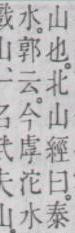 山也。北山經曰。泰
水。郭云。今虖沱水
山、名武夫山。